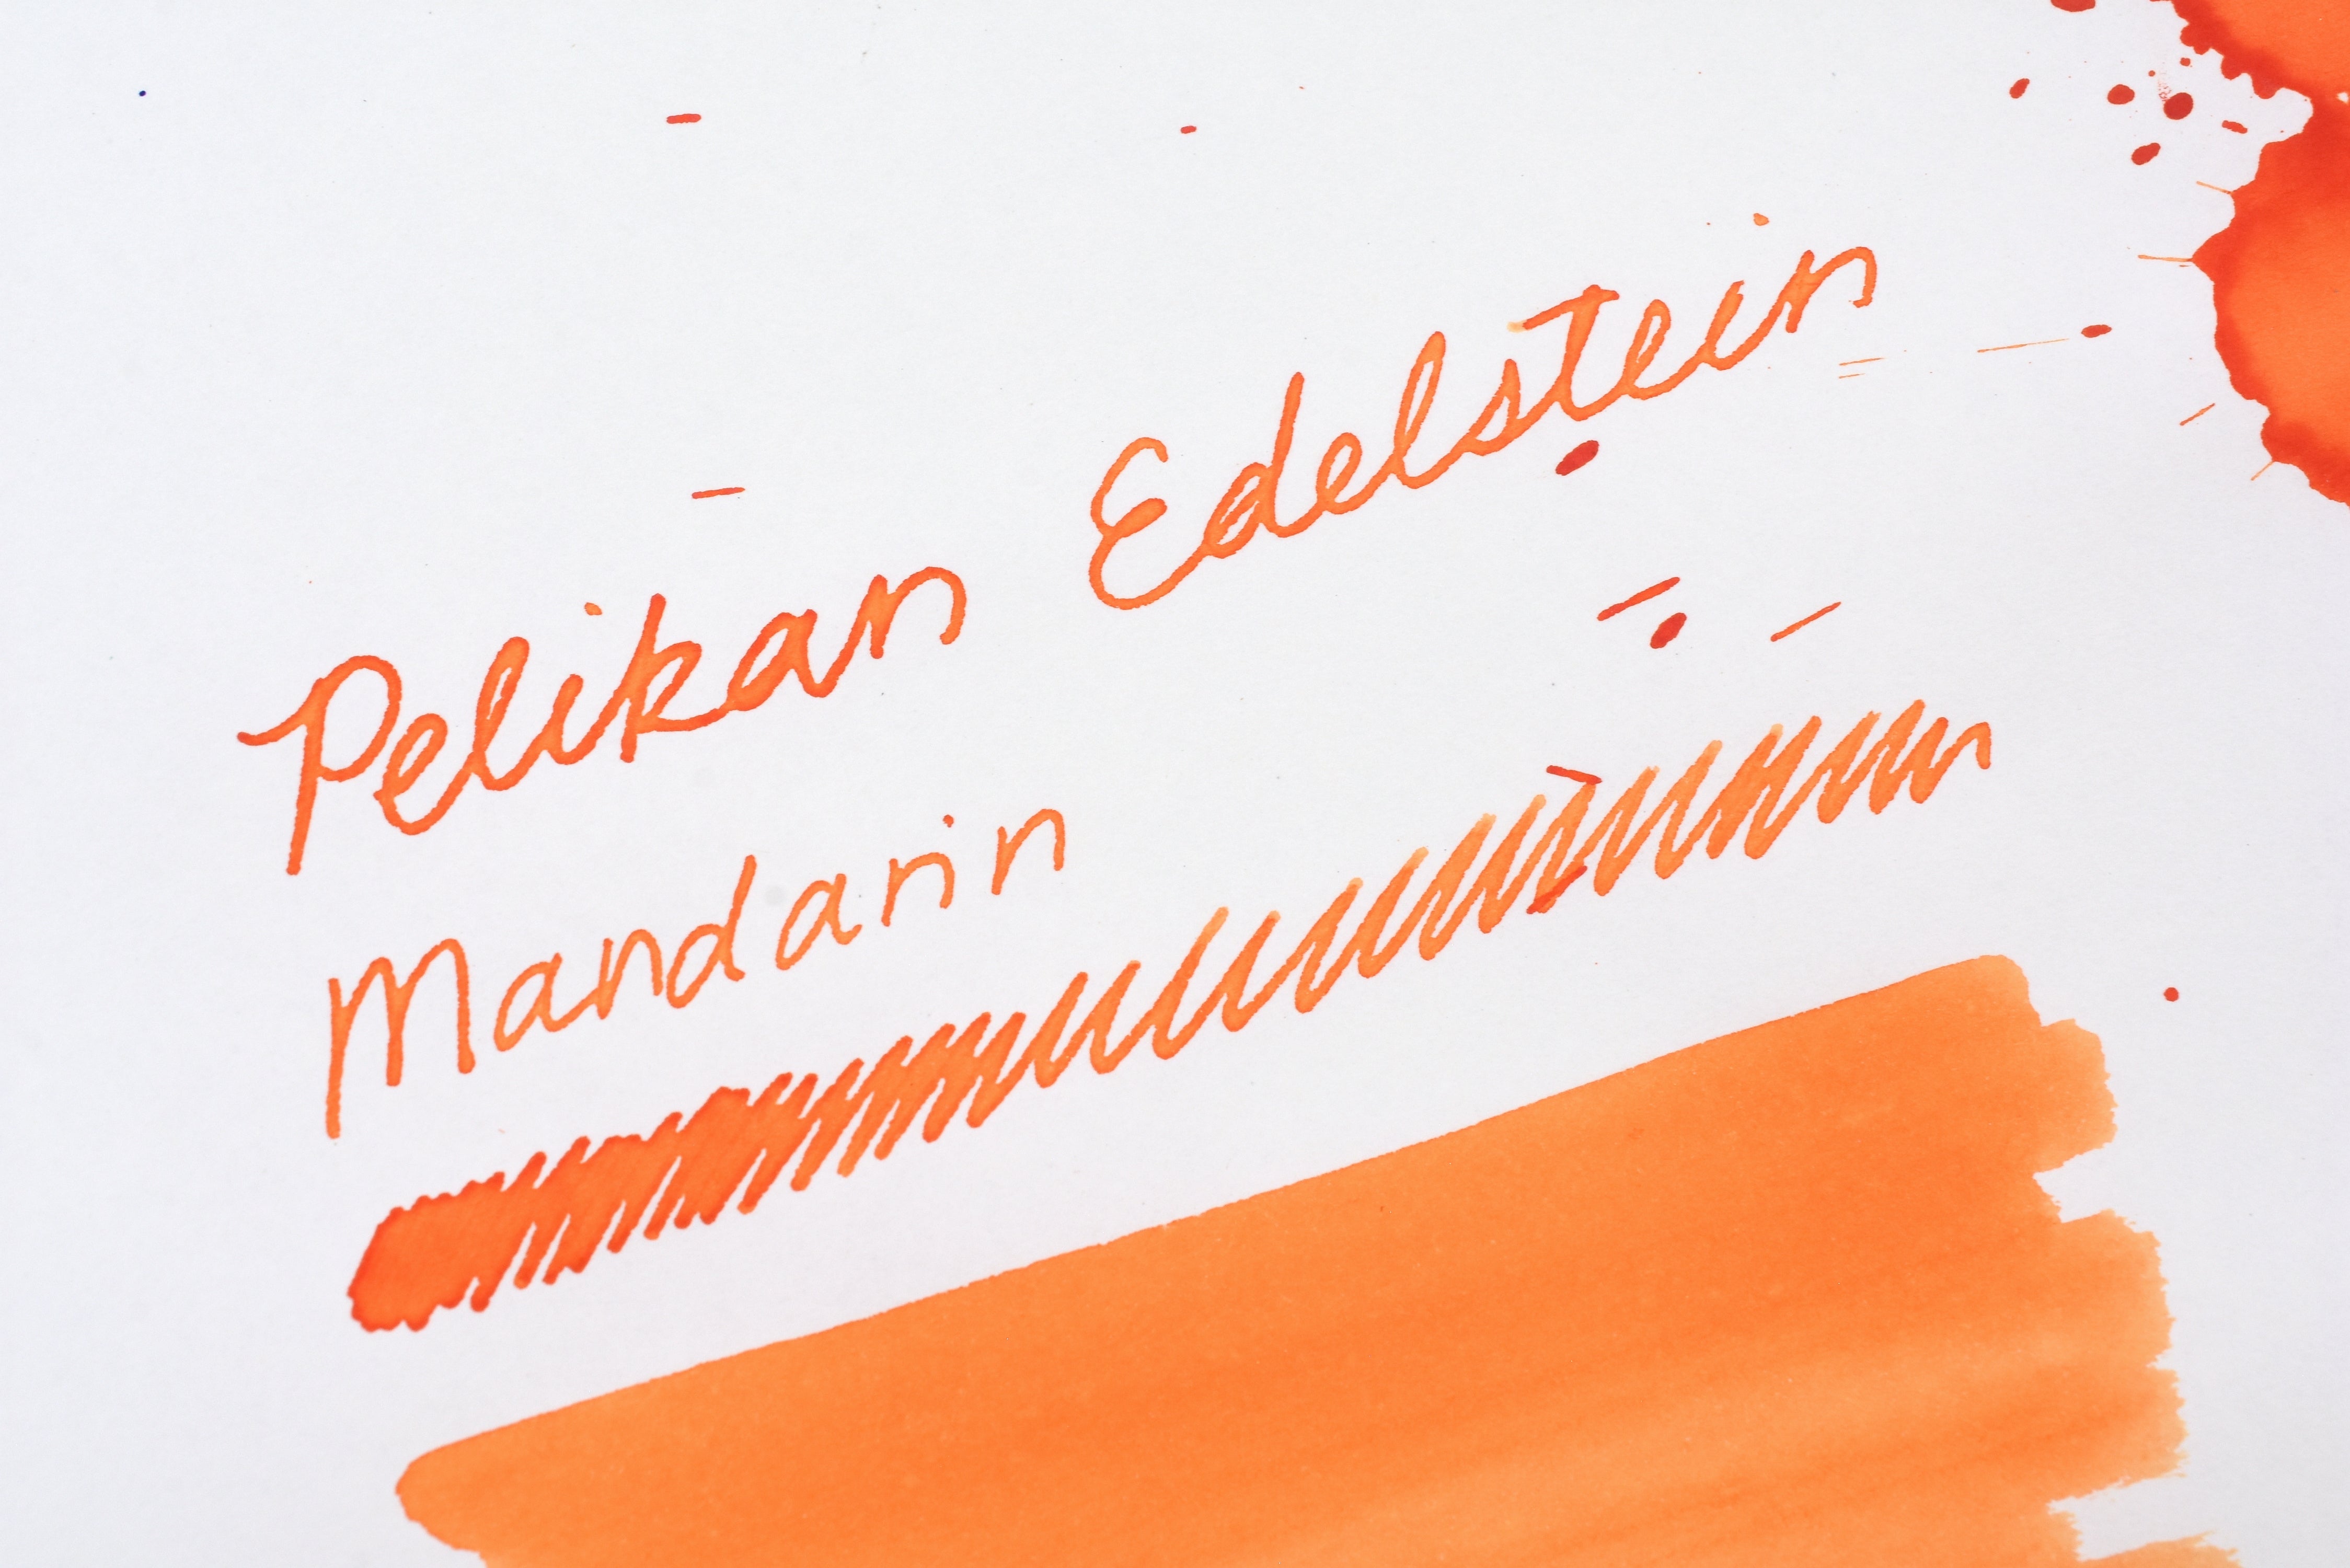 Pelikan Edelstein
Mandarin